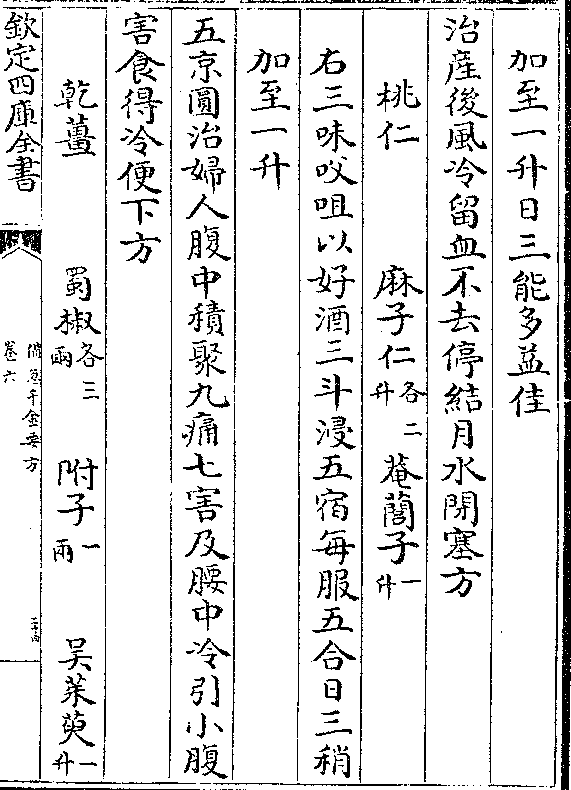 加至一升日三能多益佳
治產後風冷留血不去停結月水閉塞方
桃仁 麻子仁各二升 菴䕡子一升
右三味㕮咀以好酒三斗浸五宿每服五合日三稍
加至一升
五京圓治婦人腹中積聚九痛七害及腰中冷引小腹
害食得冷便下方
乾薑 蜀椒各三兩 附子一兩 吳茱萸一升
欽定四庫全書
備急千金要方
卷六